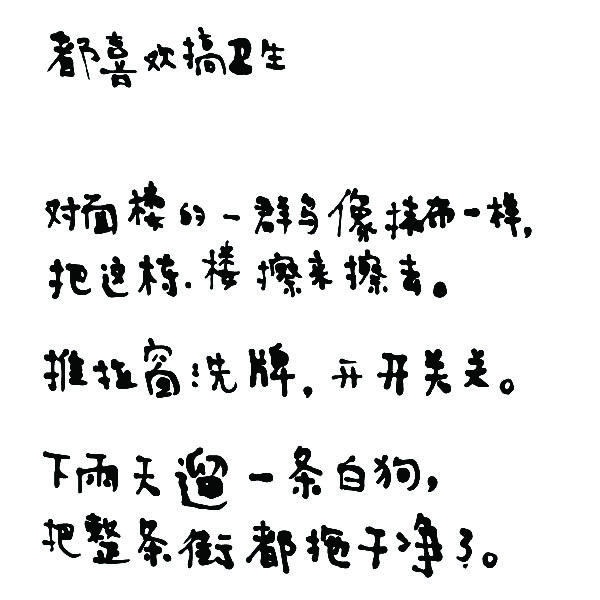 都喜欢搞卫生
对面楼的一群鸟像抹布一样，
把这栋楼擦来擦去。
推拉窗洗牌，开开关关。
下雨天遛一条白狗，
把整条街都拖干净了。